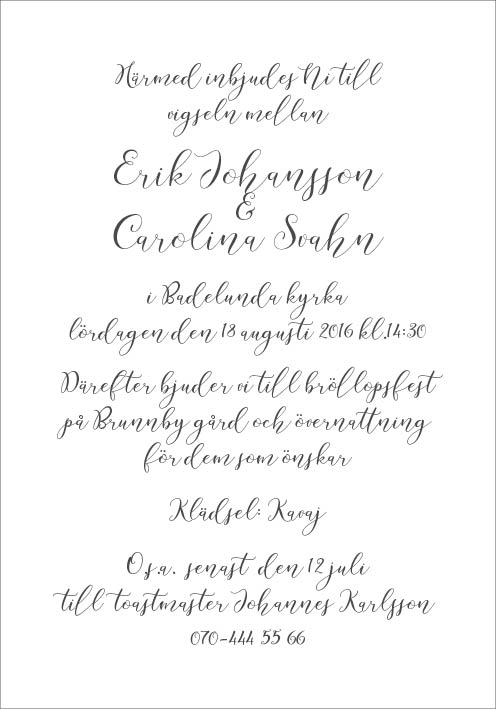 Härmed inbjudes Ni till
vigseln mellan
Erik Johansson
&
Carolina Svahn
i Badelunda kyrka
lördagen den 18 augusti 2016 kl.14:30
Därefter bjuder vi till bröllopsfest
på Brunnby gård och övernattning
för dem som önskar
Klädsel: Kavaj
O.s.a. senast den 12 juli
till toastmaster Johannes Karlsson
070-444 55 66